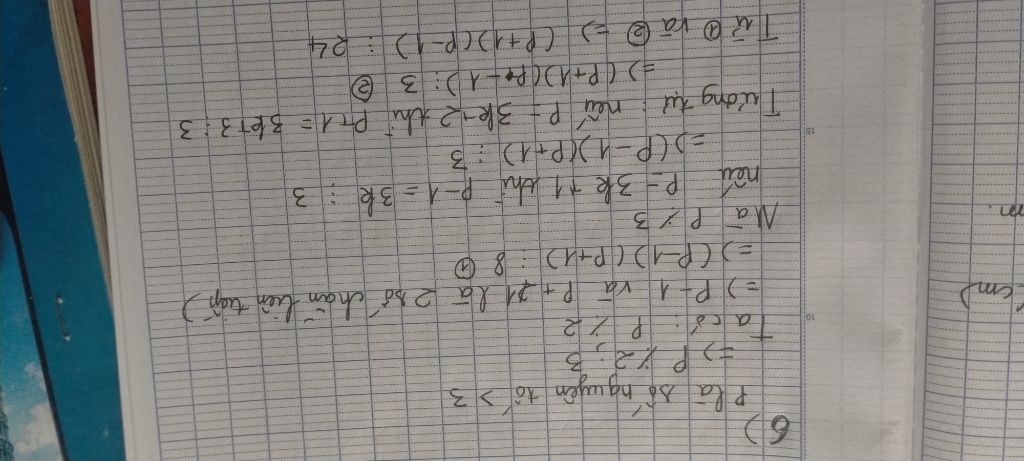 6)
P là số nguyên tố > 3
=> P ⋮̸ 2; 3
Ta có: P ⋮̸ 2
=> P - 1 và P + 1 là 2 số chẵn liên tiếp)
=> (P-1)(P+1) ⋮ 8 ①
Mà P ⋮̸ 3
nếu P = 3k + 1 thì P - 1 = 3k ⋮ 3
=> (P-1)(P+1) ⋮ 3
Tương tự: nếu P = 3k+2 thì P+1 = 3k+3 ⋮ 3
=> (P+1)(P-1) ⋮ 3 ②
Từ ① và ② => (P+1)(P-1) ⋮ 24
cm)
m.
10
15